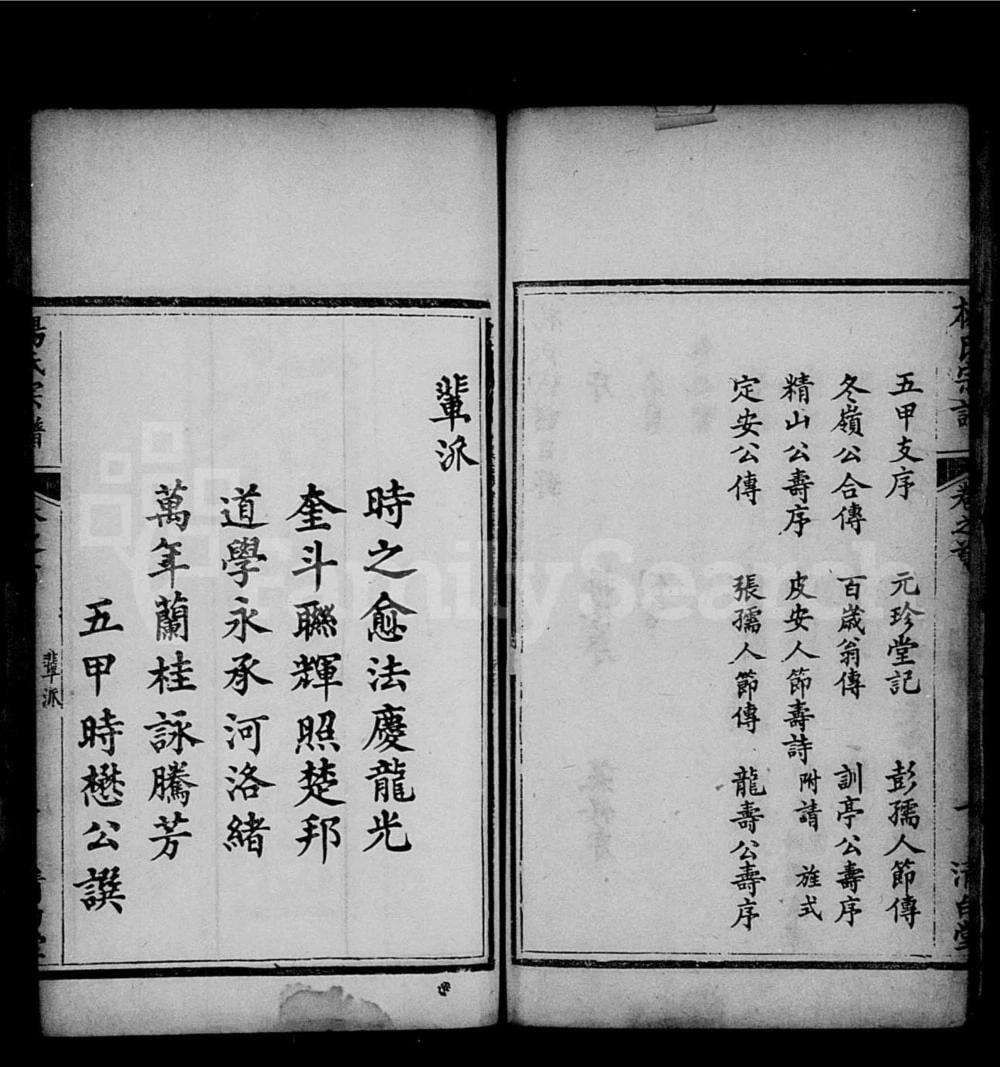 楊氏宗譜 卷之首 一 清白堂
五甲支序 元珍堂記 彭孺人節傳
冬嶺公合傳 百歲翁傳 訓亭公壽序
精山公壽序 皮安人節壽詩 附請 旌式
定安公傳 張孺人節傳 龍壽公壽序
輩派
時之愈法慶龍光
奎斗聯輝照楚邦
道學永承河洛緒
萬年蘭桂詠騰芳
五甲時懋公譔
楊氏宗譜
輩派
FamilySearch